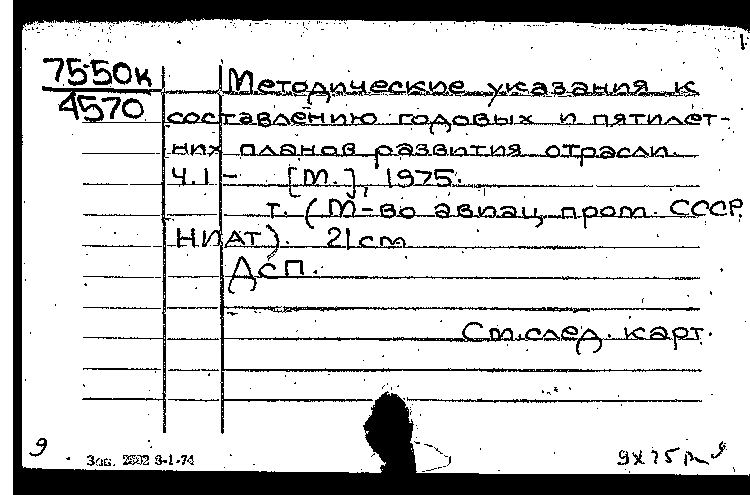 1
7550к
4570
Методические указания к
составлению годовых и пятилет-
них планов развития отрасли.
Ч.1 - [М.], 1975.
т. (М-во авиац. пром. СССР.
НИАТ). 21 см
ДСП.
См. след. карт.
9
Зак. 2502 3-1-74